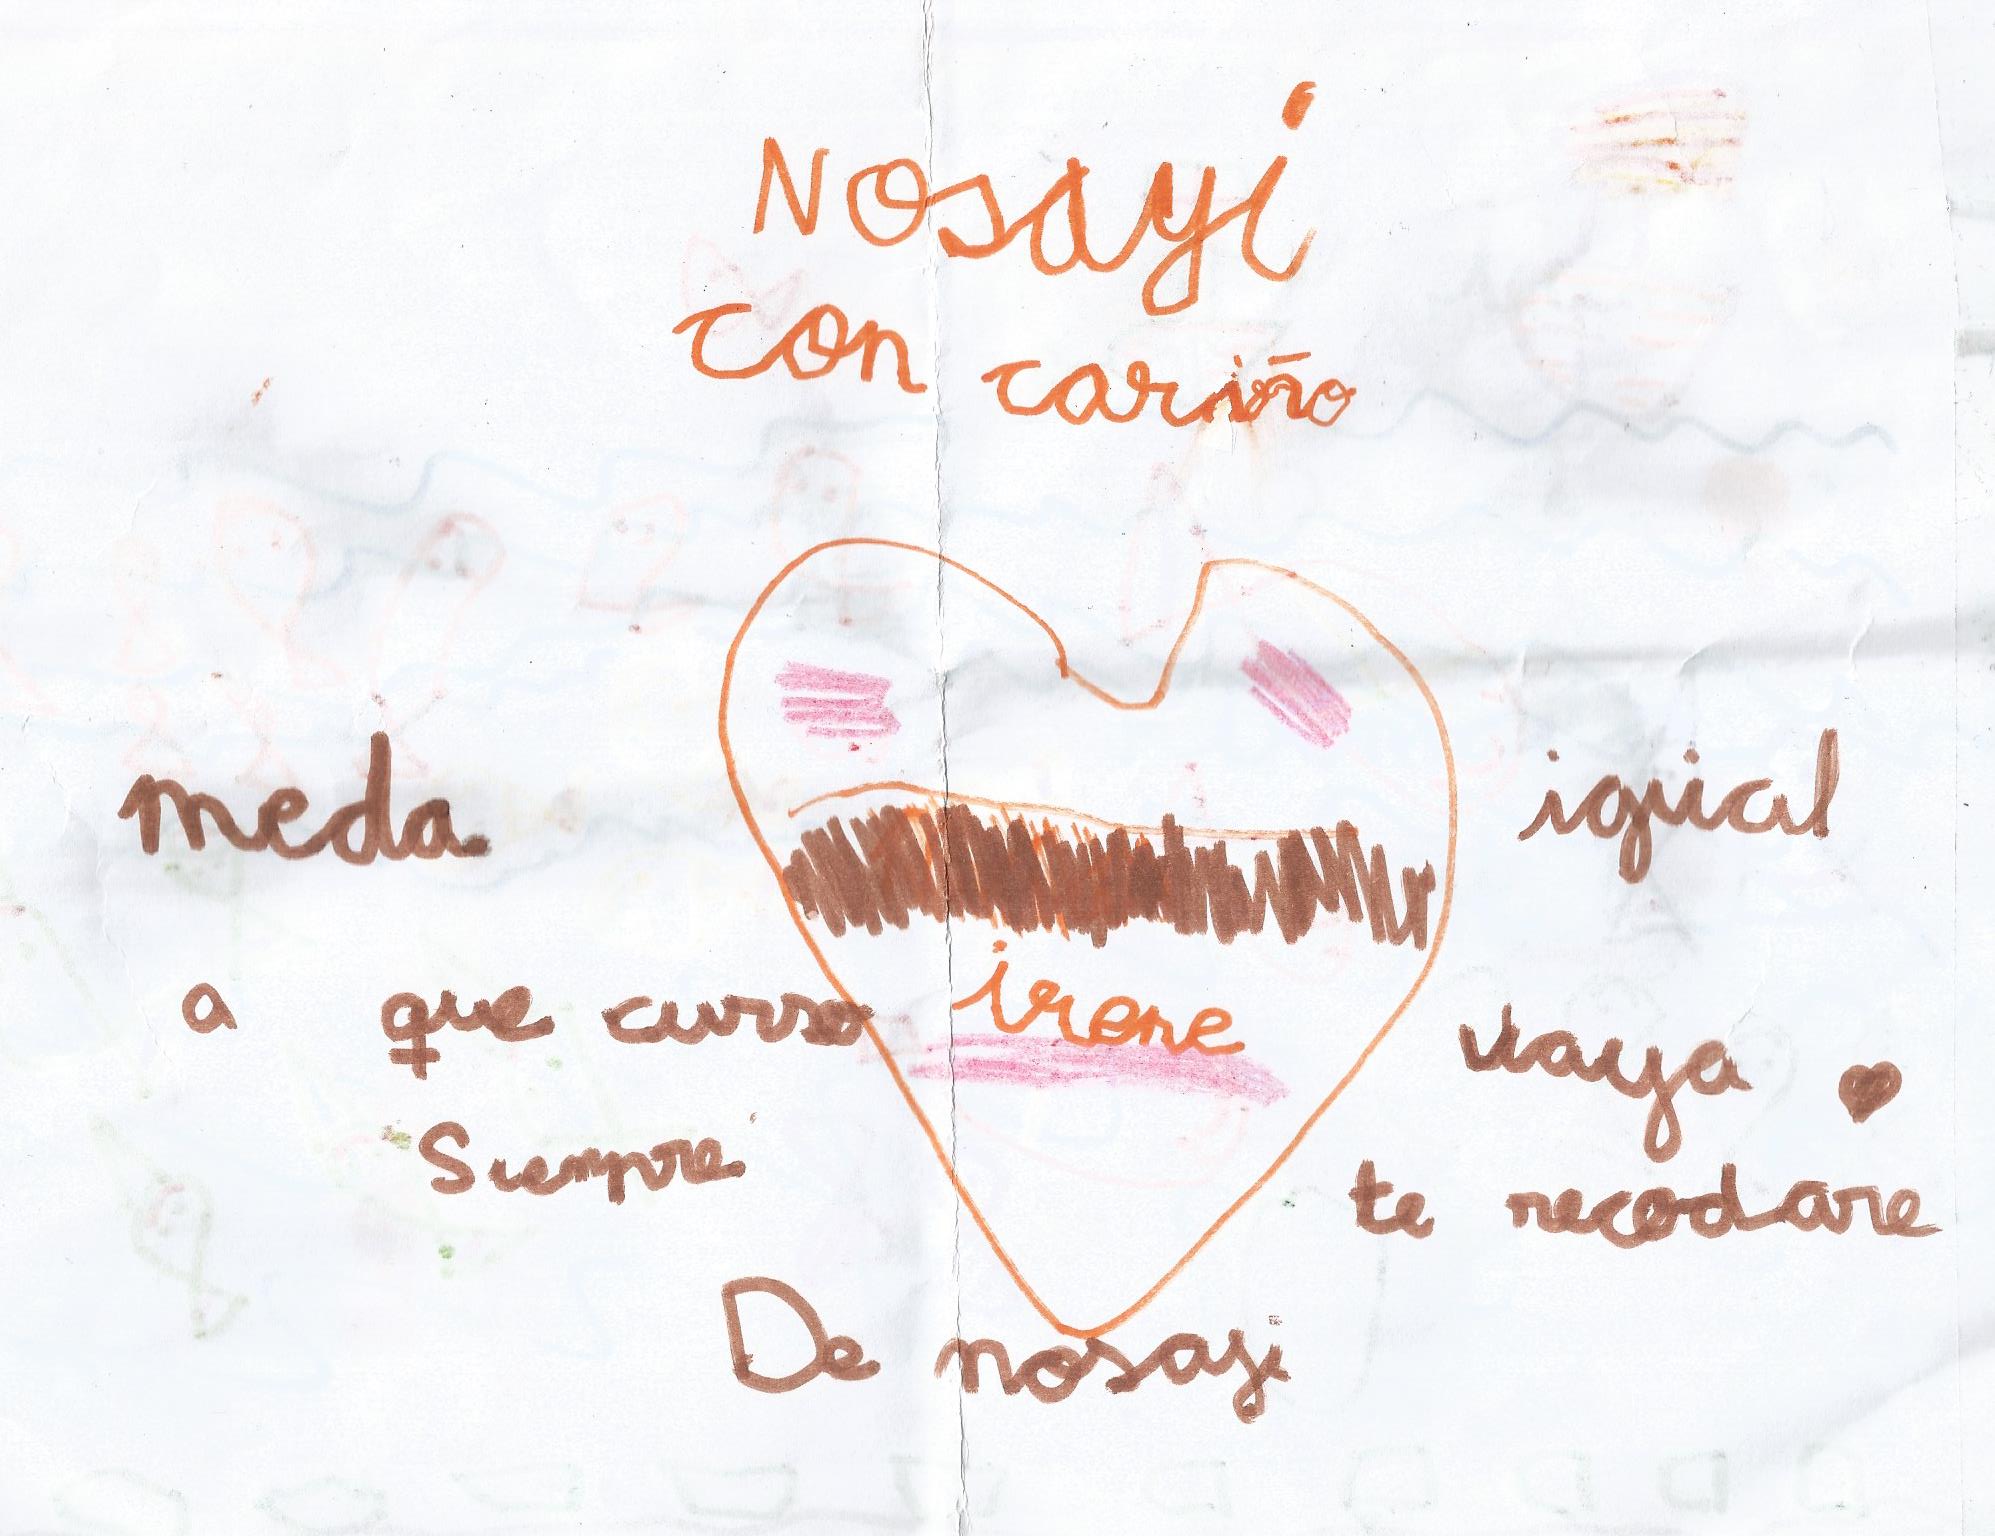 Nosayi
con cariño
meda igüal
a que curso irene vaya
Siempre te recodare
De nosayi